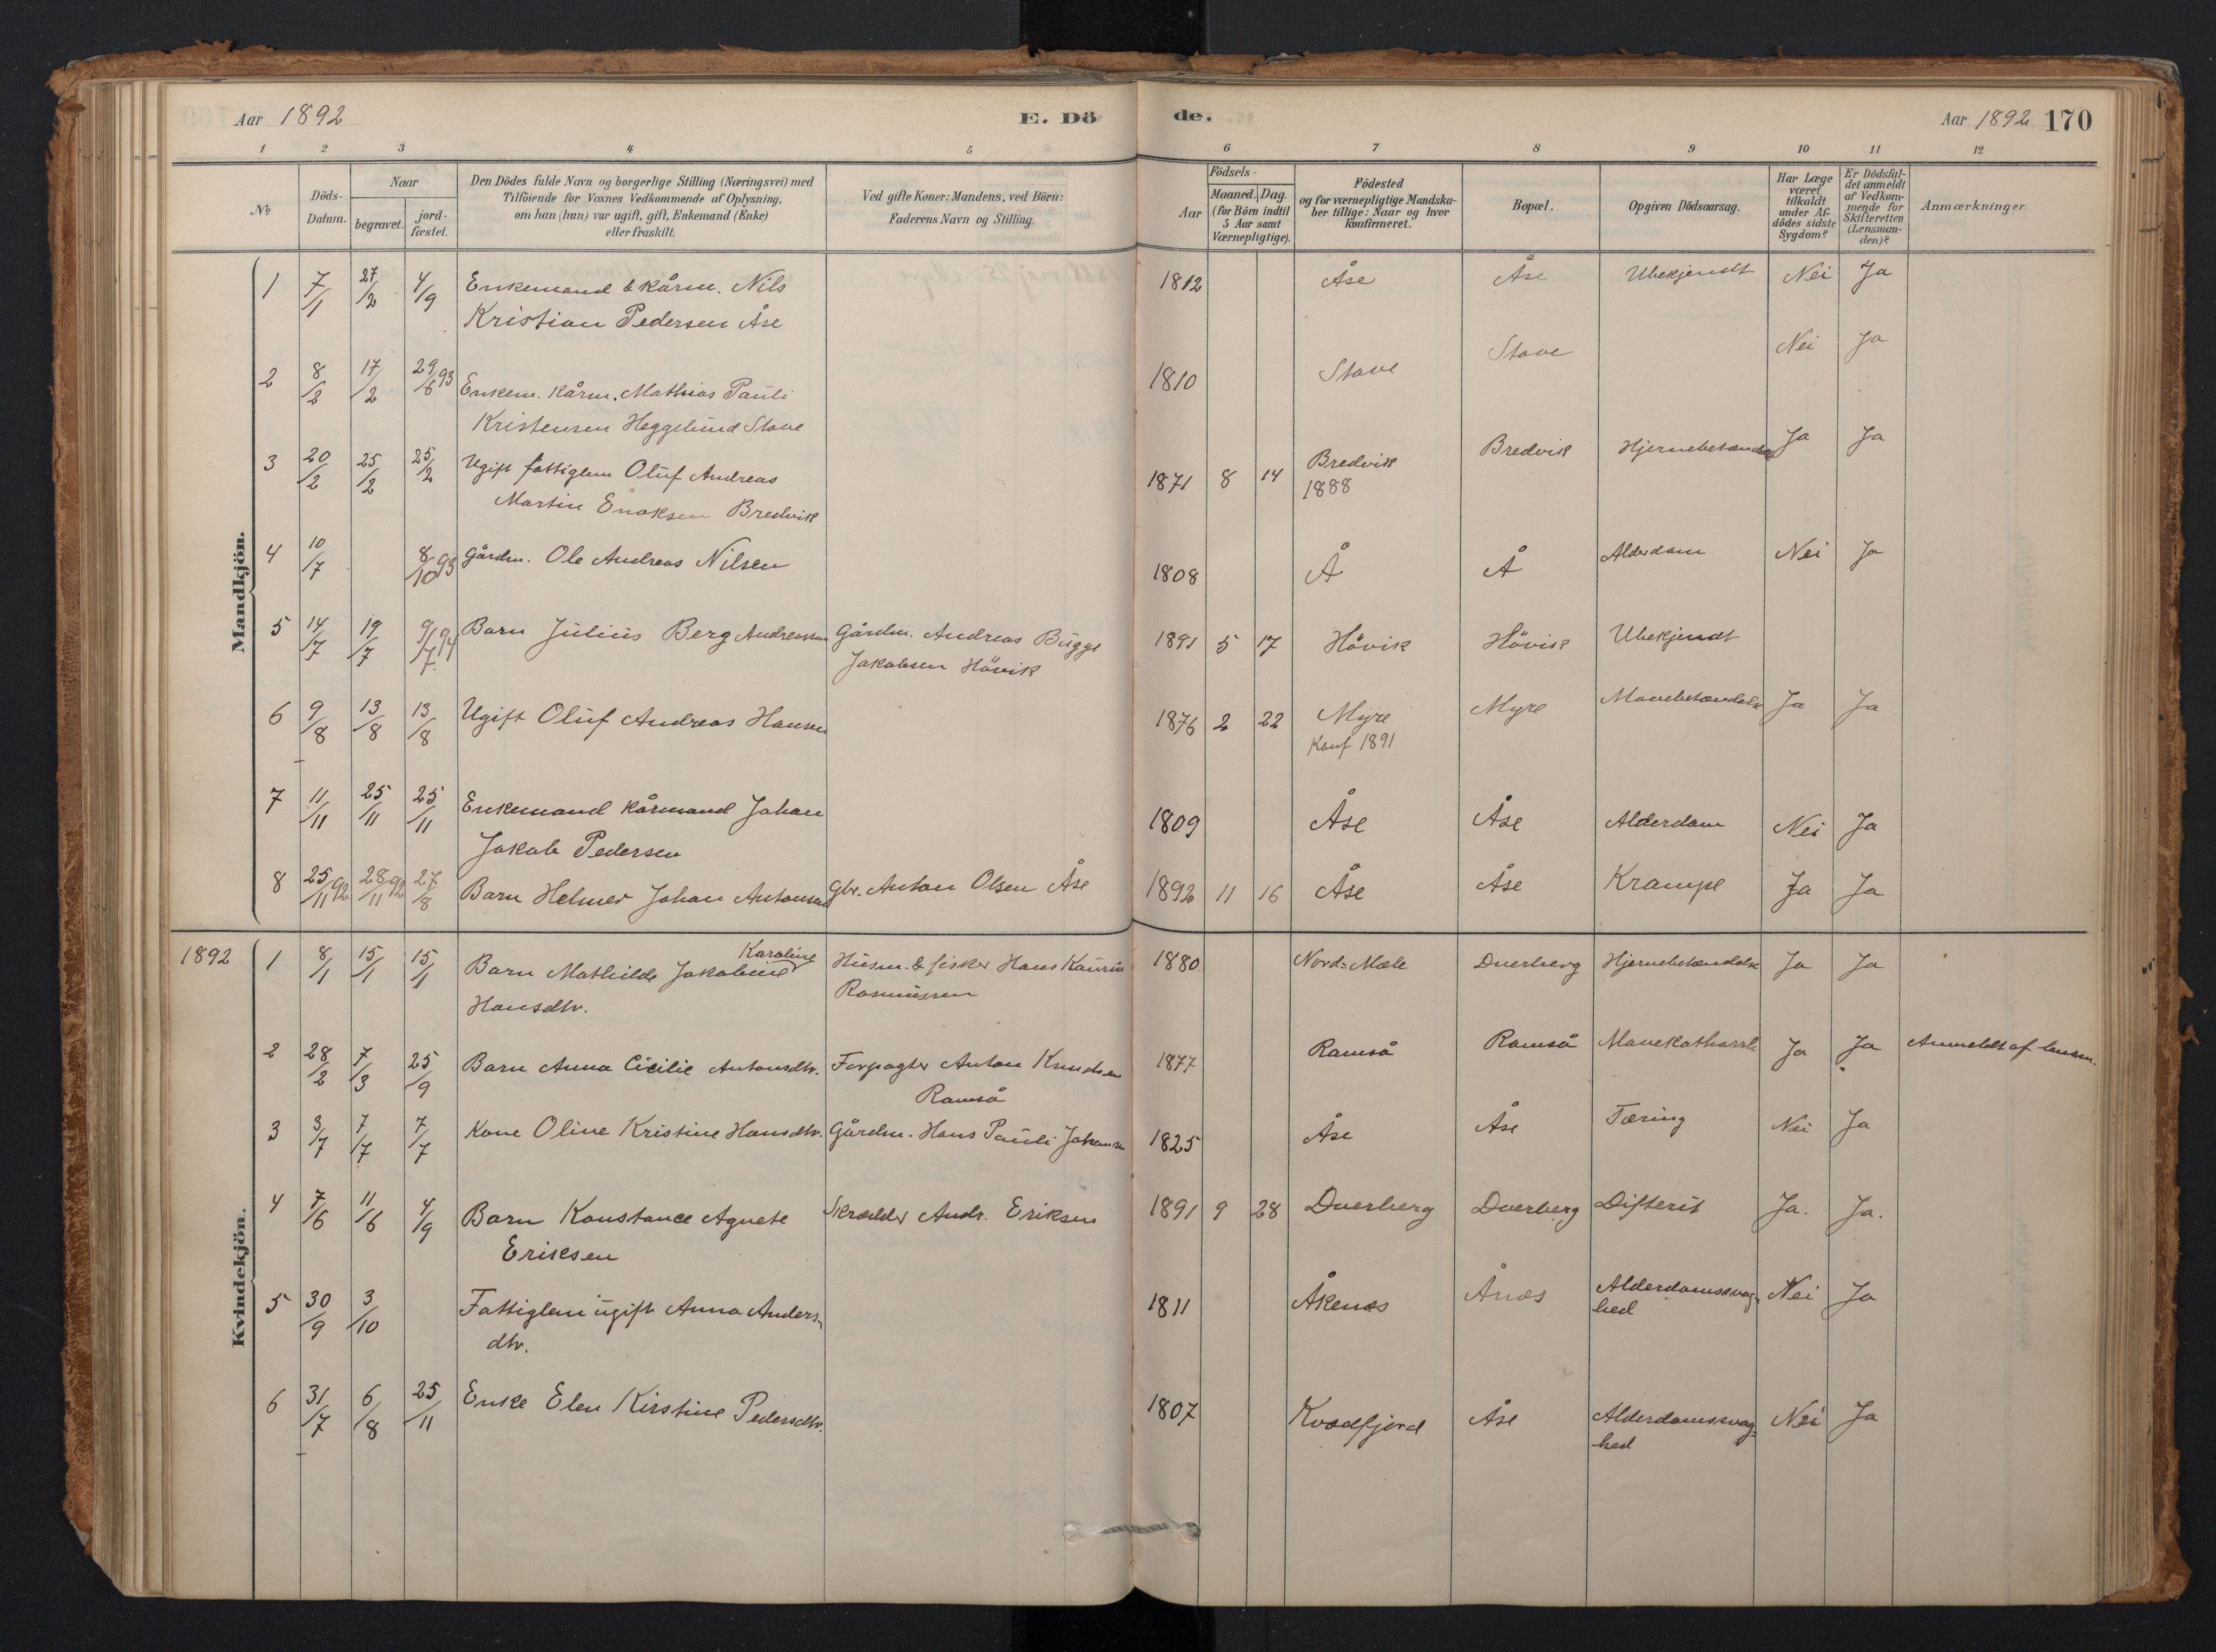 Aar 1892 E. Dö de. Aar 1892 170
1 2 3 4 5 6 7 8 9 10 11 12
No
Döds-Datum.
Naar
begravet.
jord-fæstet.
Den Dödes fulde Navn og borgerlige Stilling (Næringsvei) med
Tilföiende for Voxnes Vedkommende af Oplysning,
om han (hun) var ugift, gift, Enkemand (Enke)
eller fraskilt.
Ved gifte Koner: Mandens, ved Börn:
Faderens Navn og Stilling.
Födsels-
Aar
Maaned. Dag.
(for Börn indtil
5 Aar samt
Værnepligtige).
Födested
og for værnepligtige Mandska-
ber tillige: Naar og hvor
konfirmeret.
Bopæl.
Opgiven Dödsaarsag.
Har Læge
været
tilkaldt
under Af-
dödes sidste
Sygdom?
Er Dödsfal-
det anmeldt
af Vedkom-
mende for
Skifteretten
(Lensman-
den)?
Anmærkninger.
Mandkjön.
1 7/1 27/2 4/9 Enkemand & kårm. Nils 1812 Åse Åse Ubekjendt Nei Ja
Kristian Pedersen Åse
2 8/2 17/2 29/6 93 Enkem. kårm. Mathias Pauli 1810 Stave Stave Nei Ja
Kristensen Heggelund Stave
3 20/2 25/2 25/2 Ugift fattiglem Oluf Andreas 1871 8 14 Bredvik Bredvik Hjernebetændelse Ja Ja
Martin Enoksen Bredvik 1888
4 10/7 8/10 93 Gårdm. Ole Andreas Nilsen 1808 Å Å Alderdom Nei Ja
5 14/7 19/7 9/7 94 Barn Julius Berg Andreassen Gårdm. Andreas Bugge 1891 5 17 Hövik Hövik Ubekjendt
Jakobsen Hövik
6 9/8 13/8 13/8 Ugift Oluf Andreas Hansen 1876 2 22 Myre Myre Mavebetændelse Ja Ja
Konf 1891
7 11/11 25/11 25/11 Enkemand kårmand Johan 1809 Åse Åse Alderdom Nei Ja
Jakob Pedersen
8 25/11 92 28/11 92 27/8 Barn Helmer Johan Antonsen Gbr. Anton Olsen Åse 1892 11 16 Åse Åse Krampe Ja Ja
1892
Kvindekjön.
Karoline
1 8/1 15/1 15/1 Barn Mathilde Jakobine Husm. & fisker Hans Kaurin 1880 Nord-Mæle Dverberg Hjernebetændelse Ja Ja
Hansdtr. Rasmussen
2 28/2 7/3 25/9 Barn Anna Cicilie Antonsdtr. Forpagter Anton Knudsen 1877 Ramså Ramså Mavekatharrh Ja Ja Anmeldt af lensm.
Ramså
3 3/7 7/7 7/7 Kone Oline Kristine Hansdtr. Gårdm. Hans Pauli Johansen 1825 Åse Åse Tæring Nei Ja
4 7/6 11/6 4/9 Barn Konstance Agnete Skrædder Andr. Eriksen 1891 9 28 Dverberg Dverberg Difterit Ja. Ja.
Eriksen
5 30/9 3/10 Fattiglem ugift Anna Anders- 1811 Åkenes Ånes Alderdomssvag- Nei Ja
dtr. hed
6 31/7 6/8 25/11 Enke Elen Kirstine Pedersdtr. 1807 Kvædfjord Åse Alderdomssvag- Nei Ja
hed